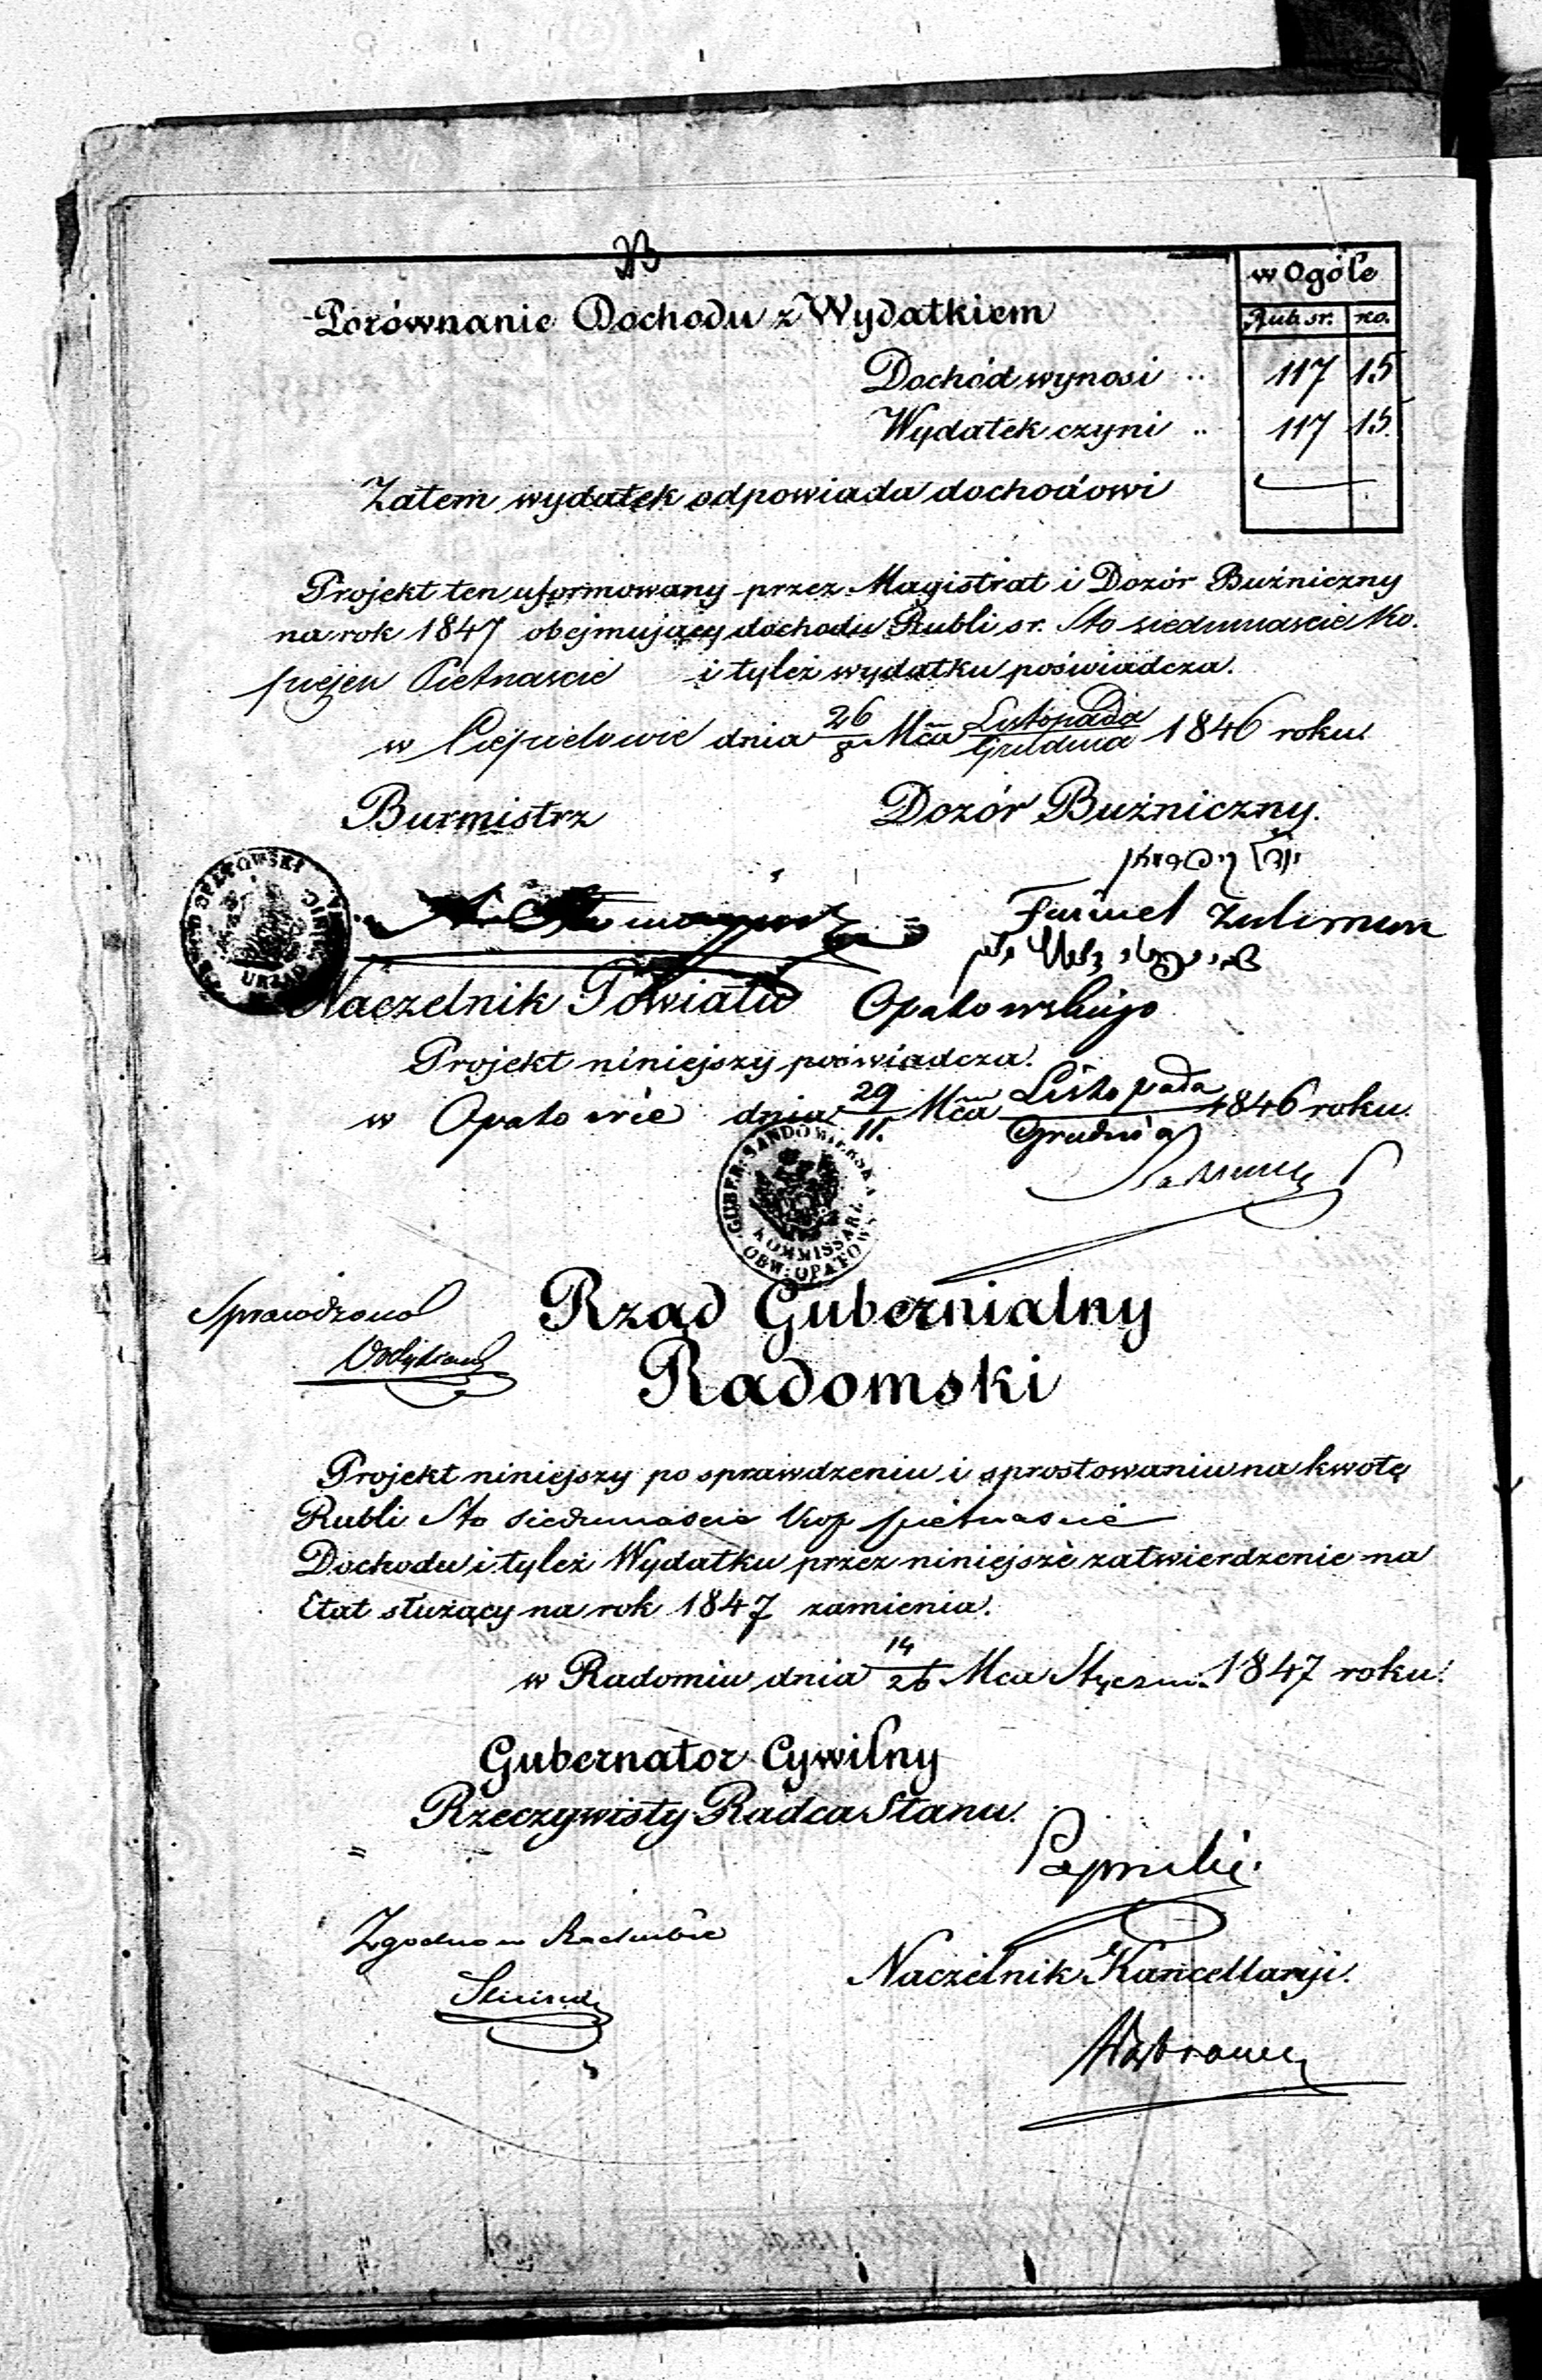 w Ogóle
Rub. sr. ko.
Porównanie Dochodu z Wydatkiem
Dochód wynosi .. 117 15
Wydatek czyni .. 117 15.
Zatem wydatek odpowiada dochodowi
Projekt ten uformowany przez Magistrat i Dozór Buźniczny
na rok 1847 obejmujący dochodu Rubli sr. Sto siedmnaście Ko.
piejek Pietnaście i tyleż wydatku poświadcza.
w Ciepielowie dnia 26/8 Mca Listopada/Grudnia 1846 roku.
Burmistrz Dozór Buźniczny.
Zulerman
Naczelnik Powiatu Opatowskiego
Projekt niniejszy poświadcza.
w Opatowie dnia 29/11. Mca Listopada/Grudnia 1846 roku.
GUBER: SANDOMIERSKA
KOMMISSARZ
OBW: OPATOWS
Sprawdzono
Rząd Gubernialny
Radomski
Projekt niniejszy po sprawdzeniu i sprostowaniu na kwotę
Rubli Sto siedmnaście Kop pietnaście
Dochodu i tyleż Wydatku przez niniejsze zatwierdzenie na
Etat służący na rok 1847 zamienia.
w Radomiu dnia 14/26 Mca Styczn. 1847 roku.
Gubernator Cywilny
Rzeczywisty Radca Stanu.
Zgodno w Rachubie
Naczelnik Kancellaryi.